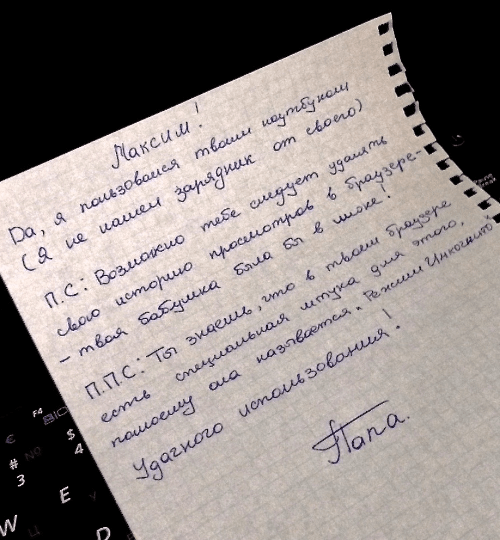 Максим!
Да, я пользовался твоим ноутбуком
(я не нашел зарядник от своего)
П.С: Возможно тебе следует удалять
свою историю просмотров в браузере-
- твоя бабушка была бы в шоке!
П.П.С: Ты знаешь, что в твоем браузере
есть специальная штука для этого,
помоему она называется "Режим Инкогнито"
Удачного использования!
Папа.
F4
€ # 3 $ 4
W E D